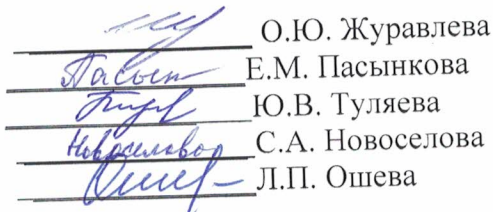 О.Ю. Журавлева
Пасын Е.М. Пасынкова
Ю.В. Туляева
Новоселова С.А. Новоселова
Ошев Л.П. Ошева